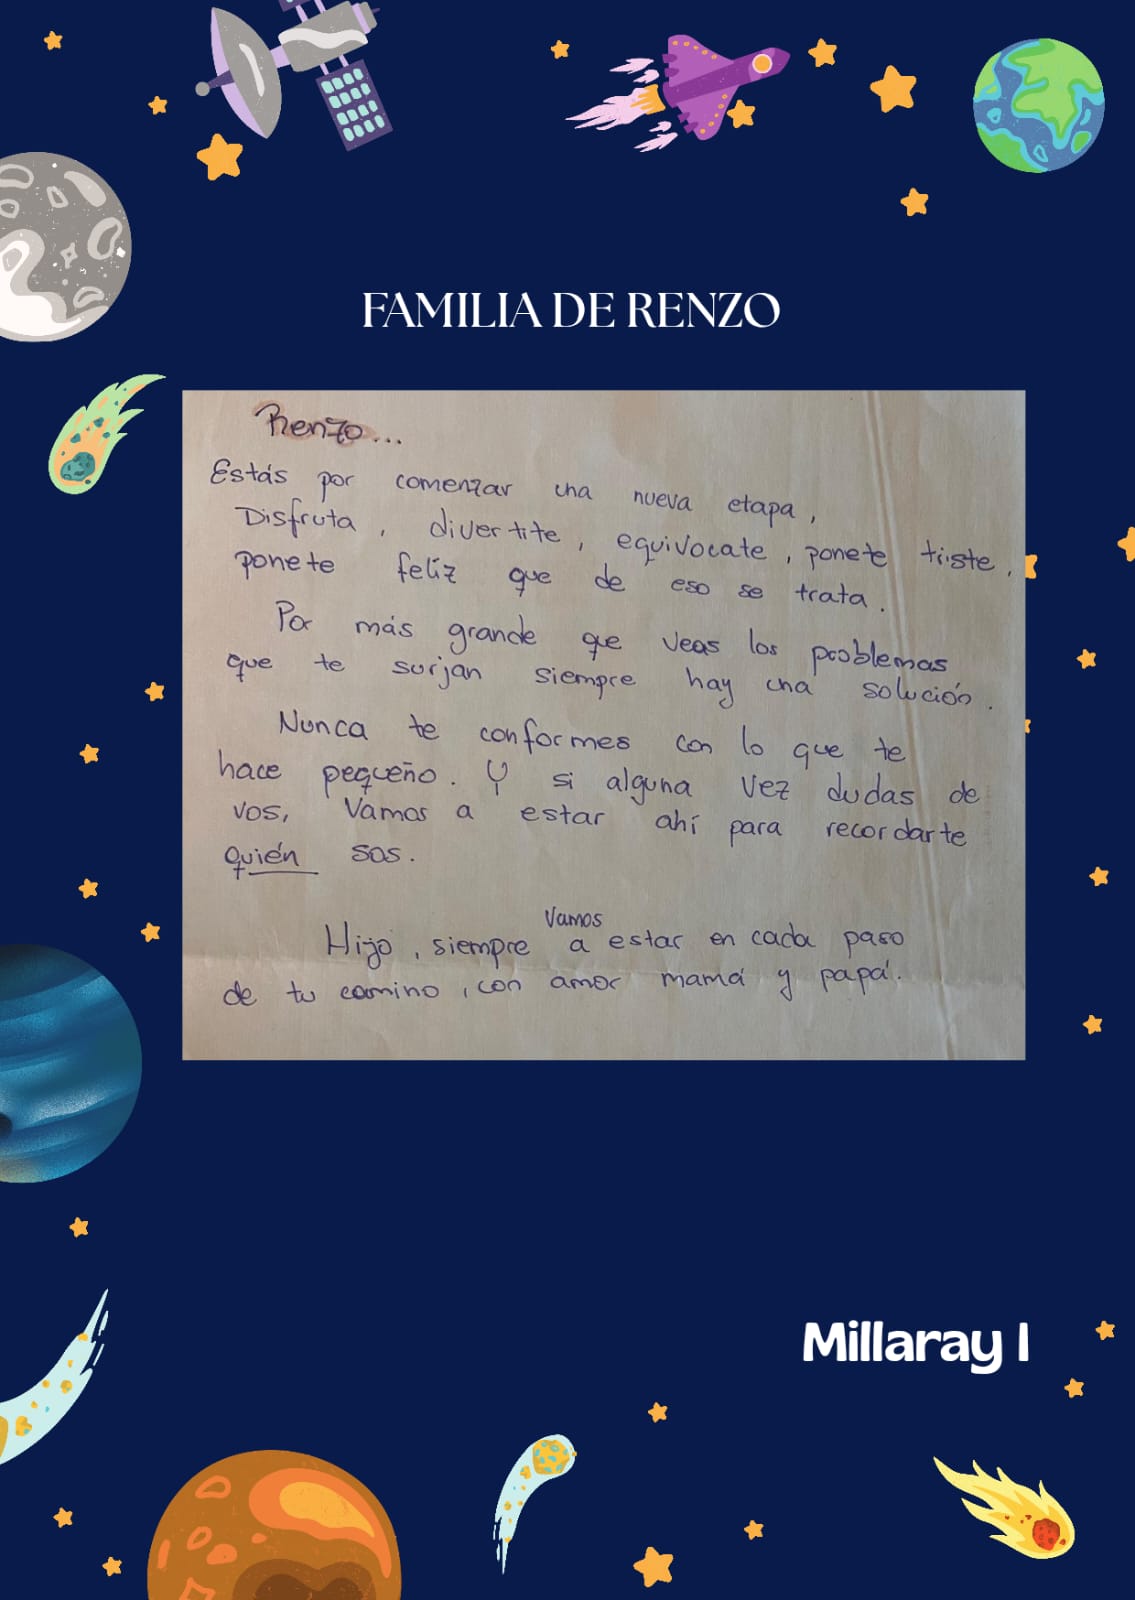 FAMILIA DE RENZO
Renzo...
Estás por comenzar una nueva etapa,
Disfruta, divertite, equivocate, ponete triste,
ponete feliz que de eso se trata.
Por más grande que veas los problemas
que te surjan siempre hay una solución.
Nunca te conformes con lo que te
hace pequeño. Y si alguna vez dudas de
vos, vamos a estar ahí para recordarte
quién sos.
Vamos
Hijo, siempre a estar en cada paso
de tu camino, con amor mamá y papá.
Millaray I